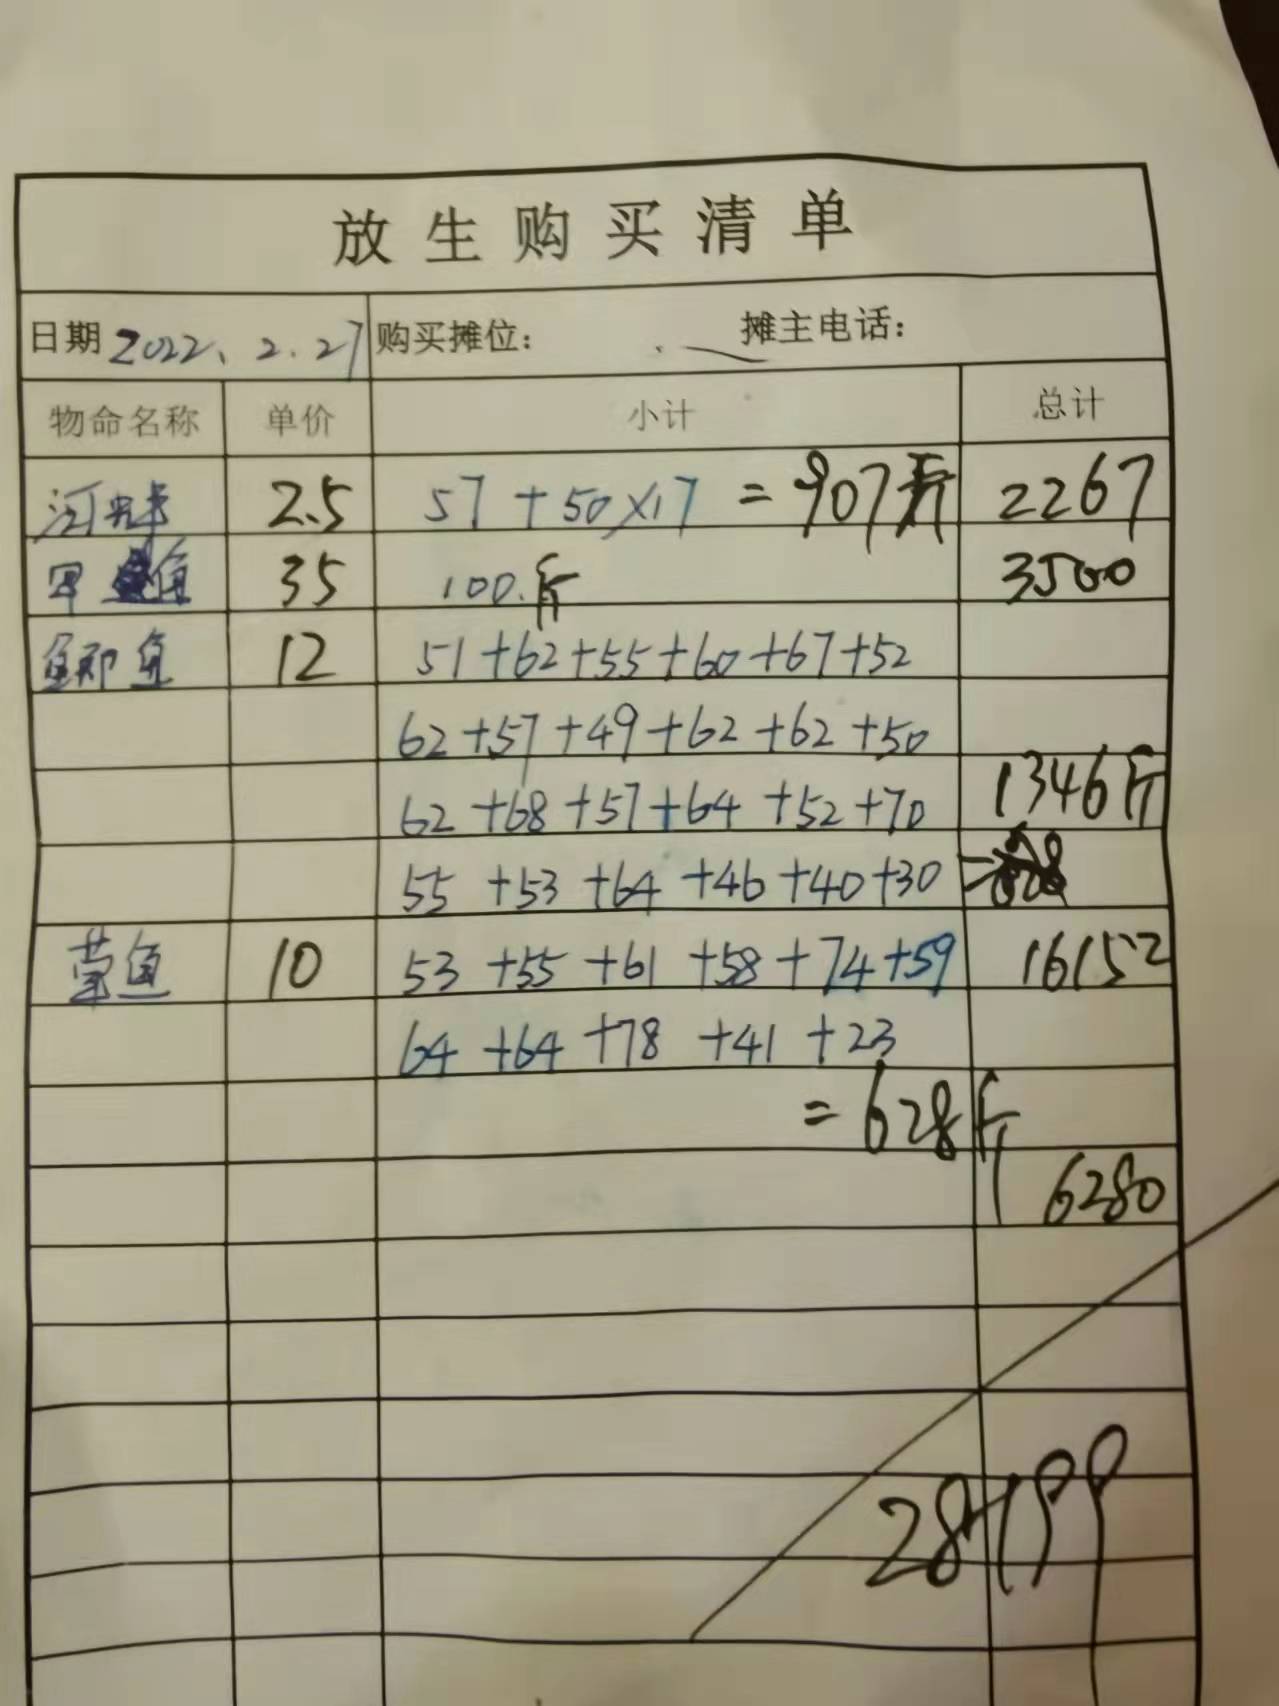 放生购买清单
日期 2022、2.27 购买摊位： 摊主电话：
物命名称 单价 小计 总计
河蚌 2.5 57+50×17 =907斤 2267
甲鱼 35 100.斤 3500
鲫鱼 12 51+62+55+60+67+52
62+57+49+62+62+50
62+68+57+64+52+70 1346斤
55+53+64+46+40+30 =
草鱼 10 53+55+61+58+74+59 16152
64+64+78+41+23
=628斤
6280
28199